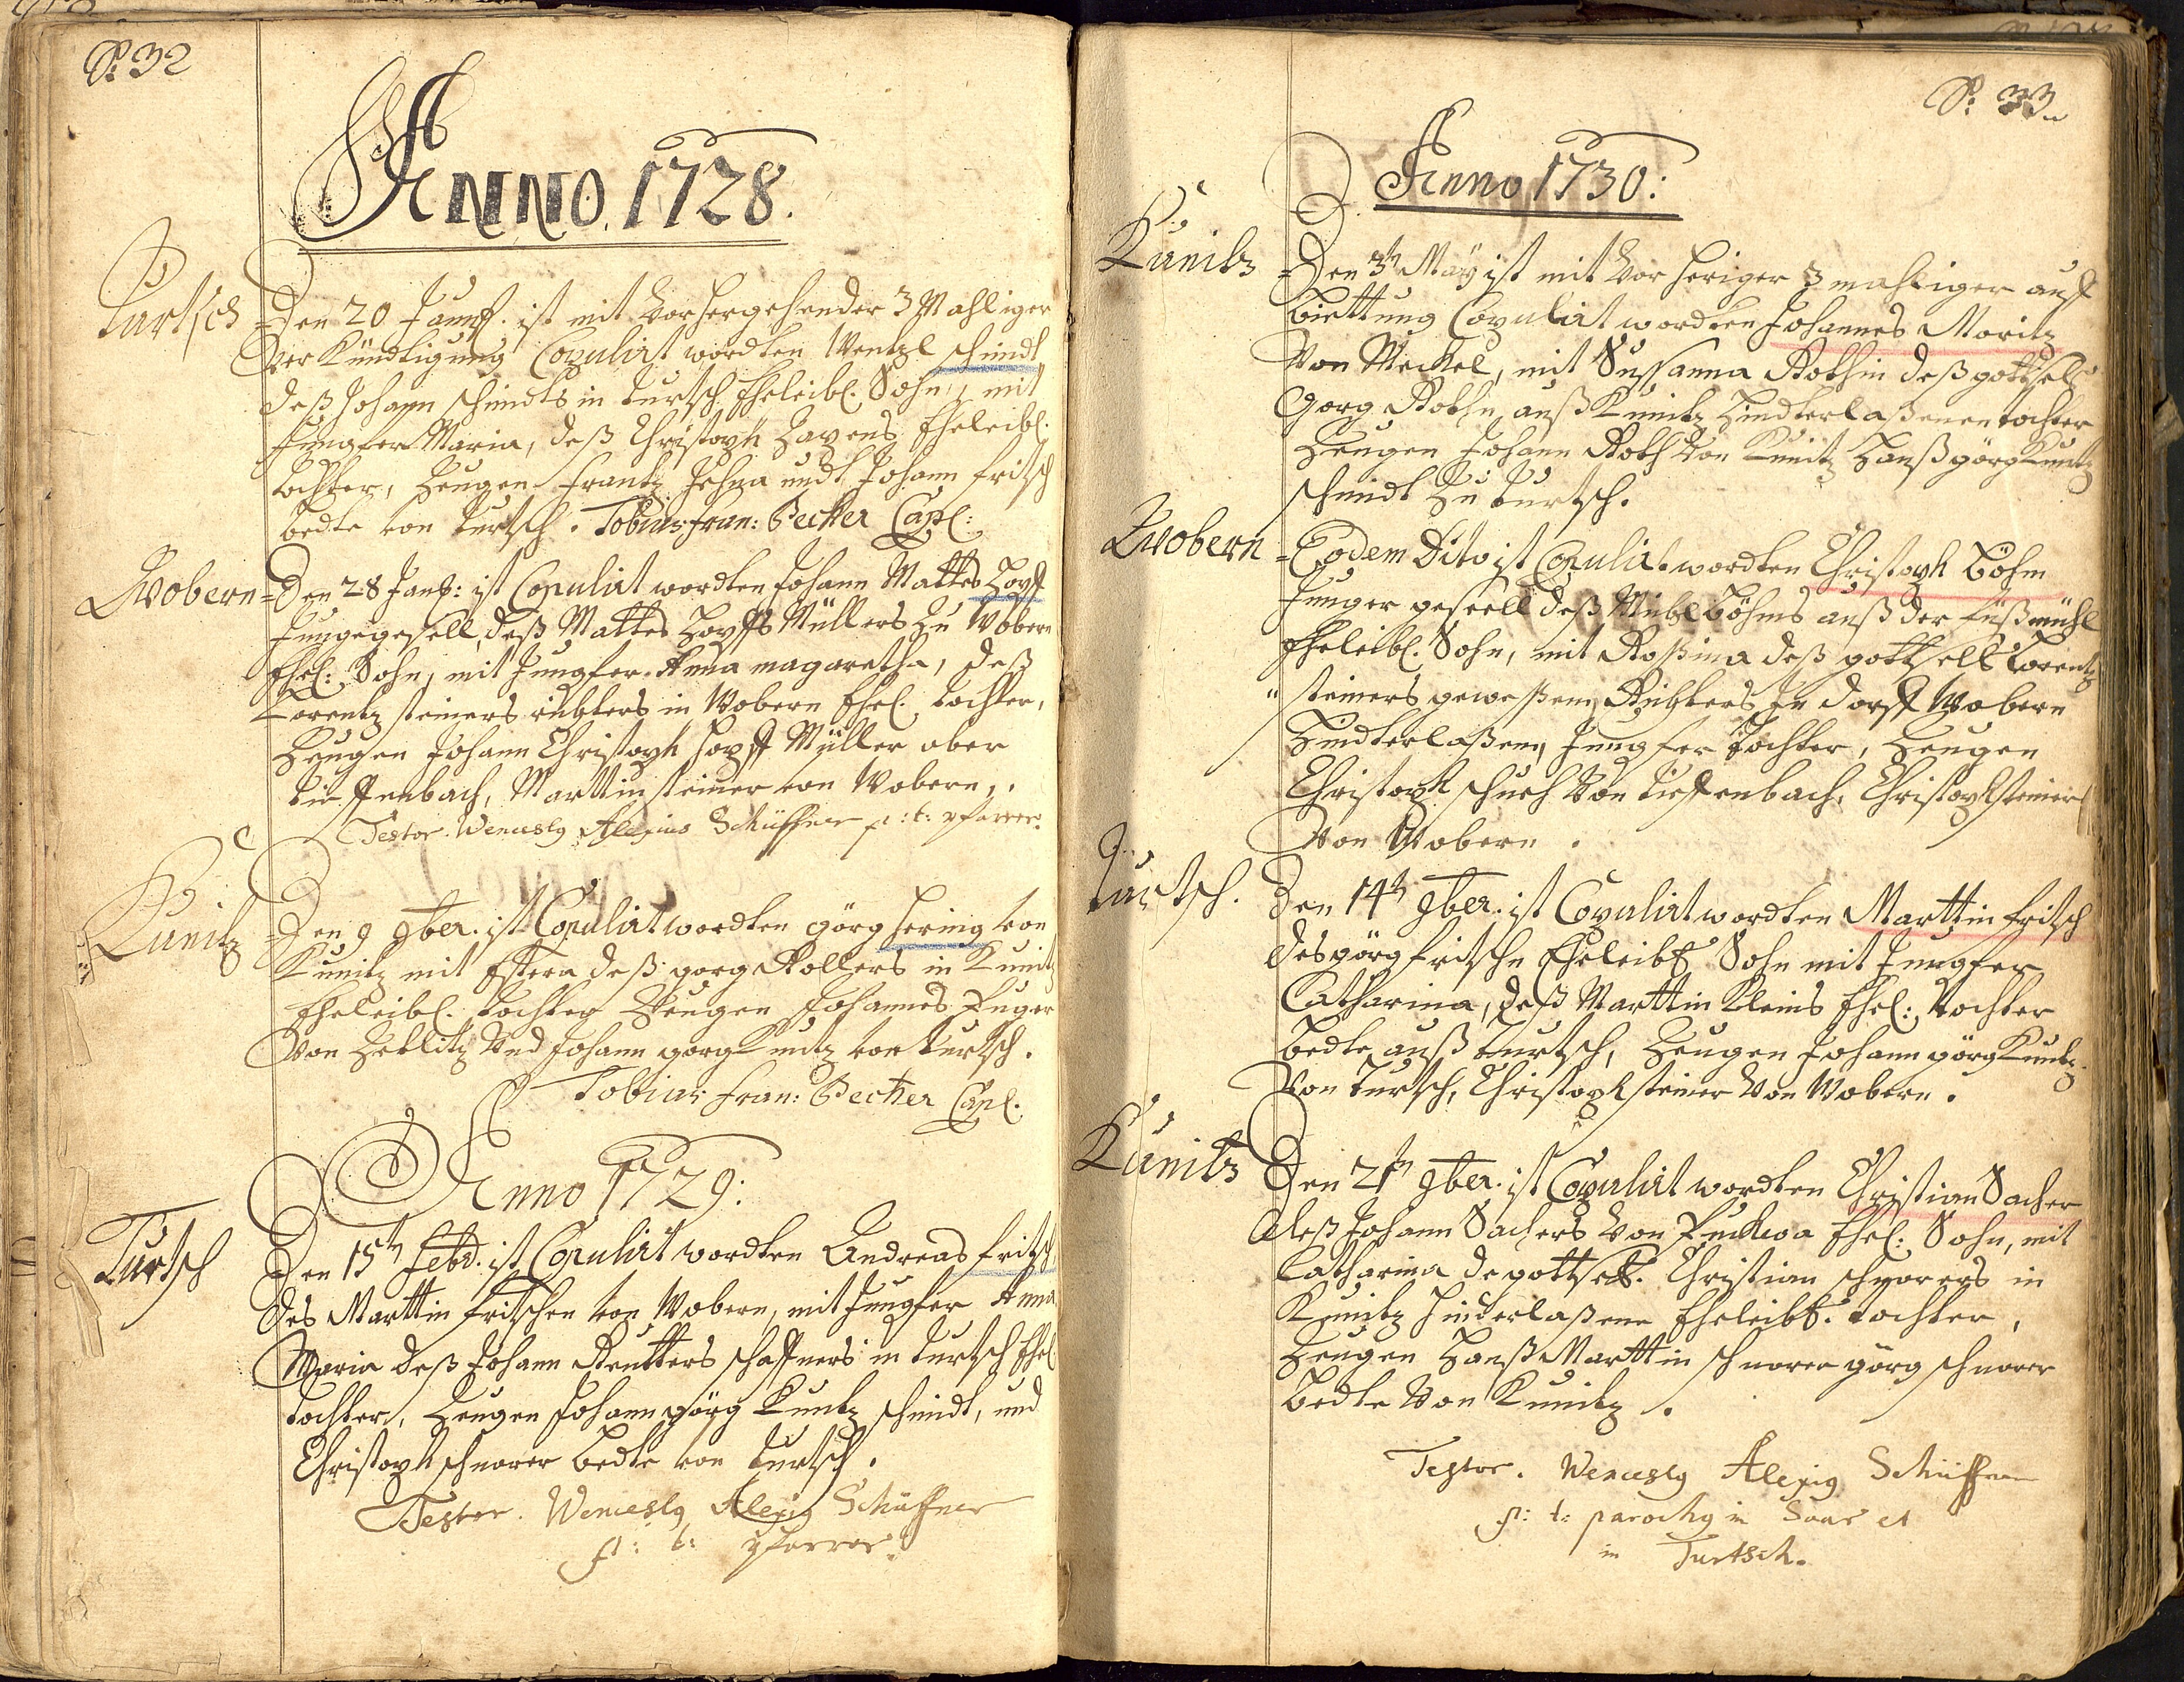 P: 32
ANNO. 1728.
Turtsch
Den 20 Januar. ist mit vorhergehender 3 Mahliger
ver Kündtigung Copulirt wordten Wentzl schmidt
deß Johann schmidts in turtsch Eheleibl. Sohn, mit
Jungfer Maria, deß Christoph Eheleibl.
tochter, Zeugen Frantz undt Johann fritsch
bedte von turtsch. Tobias Fran: Becker Capl:
Wobern
Den 28 Jan: ist Copulirt wordten Johann Mattes Zopff
Junggesell, deß Mattes Zopffs Müllers Zu Wobern
Ehel: Sohn, mit Jungfer Anna magaretha, deß
Lorentz steiners richters in Wobern Ehel. tochter,
Zeugen Johann Christoph Zopff Müller ober
tieffenbach, Marttin steiner von Wobern.
Testor Wenceslg Alexius Schüffner p: t: pfarrer.
Kunitz
Den 9 9ber. ist Copulirt wordten görg Hering von
Kunitz mit deß gorg Kollers in Kunitz
Eheleibl. tochter Zeugen Johannes
von Zettlitz Und Johann gorg Kuntz von turtsch.
Tobias Fran: Becker Capl.
Anno 1729:
Turtsch
Den 15tn Febr. ist Copulirt wordten Andreas fritsch
des Marttin fritschen von Wobern, mit Jungfer Anna
Maria deß Johann Reutters schaffners in turtsch Ehel
tochter, Zeugen Johann görg Kuntz schmidt, und
Christoph schnorer bedte von turtsch.
Testor. Wenceslg Alexig Schüffner
p: t: pfarrer.
P: 33
Anno 1730:
Kunitz
Den 3tn Maÿ ist mit vor heriger 3 mahliger auff
biettung Copulirt wordten Johannes Moritz
von Meckel, mit Sussanna Rothin deß gottsel:
Gorg Rothn auß Kunitz hindterlaßenen tochter
Zeugen Johann Roth von Kunitz Hanß görg Kuntz
schmidt Zu turtsch.
Wobern
Eodem Dito ist Copulirt wordten Christoph böhm
Junger geseell deß Michl böhms auß der fußmühl
Eheleibl. Sohn, mit Roßina deß gottsell Lorentz
steiners geweßenen Richters In dorff Wobern
hindterlaßenen Jungfer tochter, Zeugen
Christoph schuch von tieffenbach, Christoph steiner
von Wobern.
Turtsch.
Den 14tn 9ber. ist Copulirt wordten Marttin fritsch
des görg fritschn Eheleibl Sohn mit Jungfer
Catharina, deß Marttin Kleins Ehel: tochter
bedte auß turtsch, Zeugen Johann görg Kuntz
von turtsch, Christoph steiner von Wobern.
Kunitz
Den 21tn 9ber. ist Copulirt wordten Christian Sacher
deß Johann Sachers von Puchwa Ehel: Sohn, mit
Catharina de gottsell. Christian schnorers in
Kunitz hinderlaßene Eheleibl. tochter,
Zeugen Hanß Marttin schnorer görg schnorer
bedte von Kunitz.
Testor. Wenceslg Alexig Schüffner
p: t: parochg in Saar et
in Turtsch.